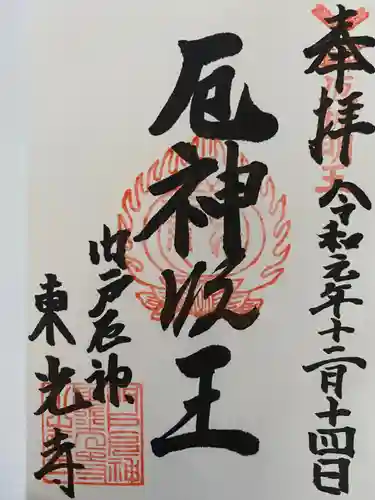 奉拝 令和元年十二月十四日
厄神明王
門戸厄神
東光寺